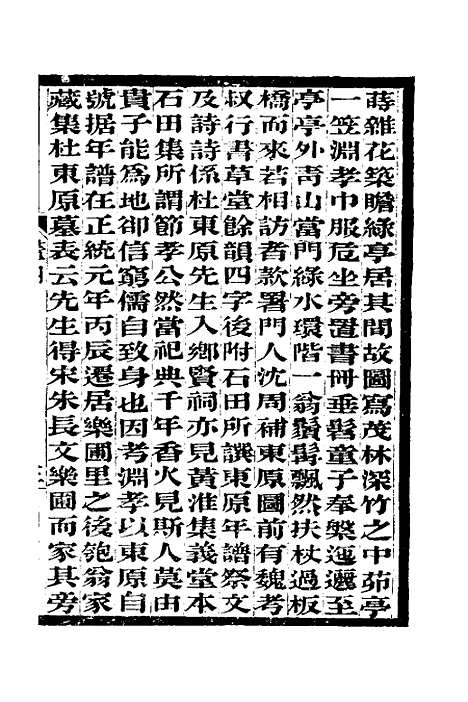 蒔雜花築瞻綠亭居其間故圖寫茂林深竹之中茆亭
一笠淵孝巾服危坐旁置書冊垂髫童子奉槃迤邐至
亭亭外靑山當門綠水環階一翁鬚髯飄然扶杖過板
橋而來若相訪者款署門人沈周補東原圖前有魏考
叔行書草堂餘韻四字後附石田所譔東原年譜祭文
及詩詩係杜東原先生入鄉賢祠亦見黃淮集義堂本
石田集所謂節孝公然當祀典千年香火見斯人莫由
貴子能爲地卻信窮儒自致身也因考淵孝以東原自
號据年譜在正統元年丙辰遷居樂圃里之後匏翁家
藏集杜東原墓表云先生得宋朱長文樂圃而家其旁